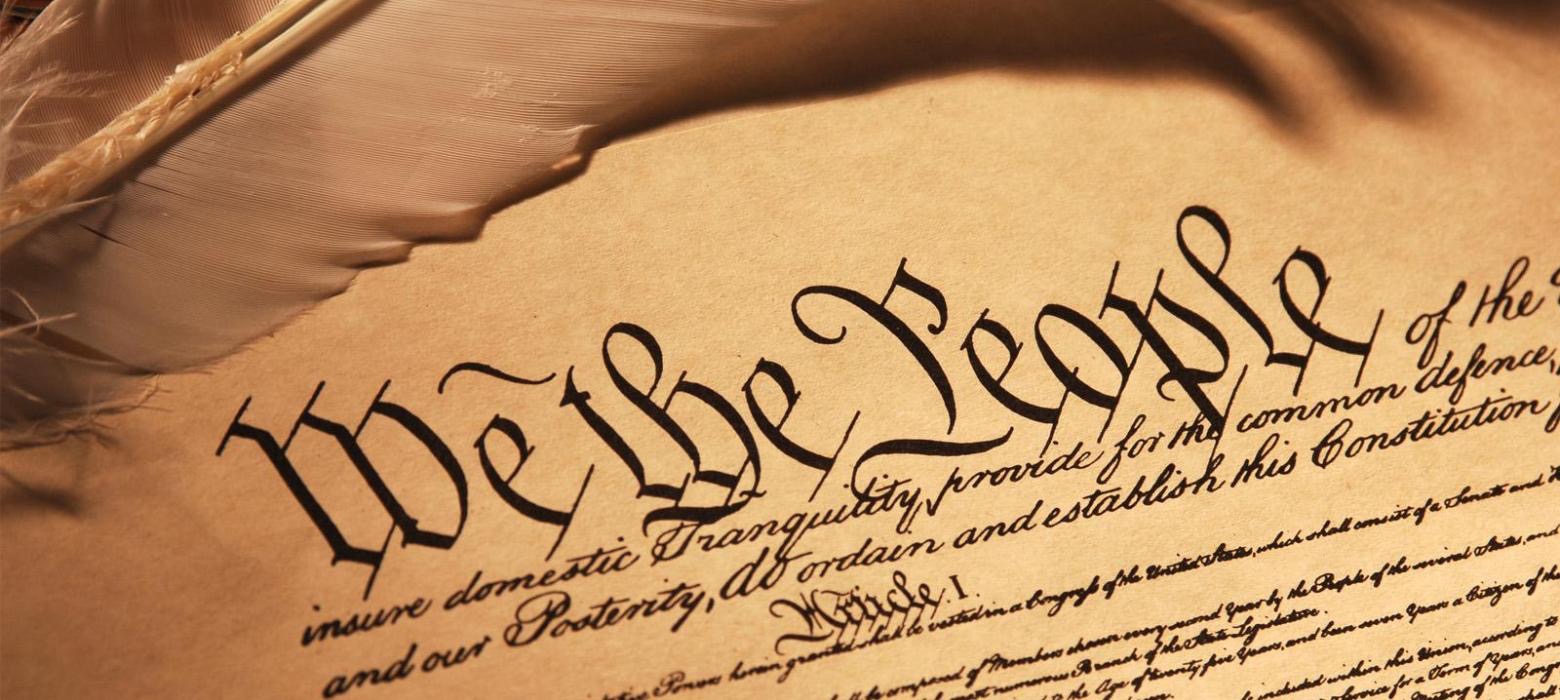 We the People of the
insure domestic Tranquility, provide for the common defence,
and our Posterity, do ordain and establish this Constitution
Article I.
Powers herein granted shall be vested in a Congress of the United States, which shall consist of a Senate and
be composed of Members chosen every second Year by the People of the several States, and
most numerous Branch of the State Legislature.
the Age of twenty five Years, and been seven Years a Citizen of the
included within this Union, according to
Service for a Term of Years, and
Meeting of the